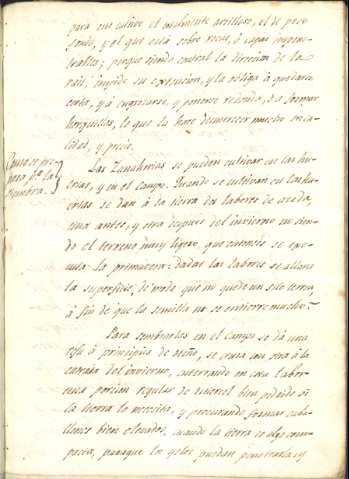 para este cultivo el realmente arcilloso, el de poco
fondo, y el que está sobre rocas, ó capas impene-
trables; porque siendo central la direccion de la
raiz, impide su extension, y la obliga á quedarse
corta, y á engrosarse, y ponerse redonda, ó á formar
horquillas, lo que la hace desmerecer mucho en ca-
lidad, y precio.
Como se pre-
para pª. la
siembra.
Las Zanahorias se pueden cultivar en las hu-
ertas, y en el campo. Quando se cultivan en las hu-
ertas se dan á la tierra dos labores de azada,
una antes, y otra despues del invierno no sien-
do el terreno muy ligero, que entonces se exe-
cuta la primavera: dadas las labores se allana
la superficie, de modo que no quede un solo terron,
á fin de que la semilla no se entierre mucho.
Para sembrarlas en el campo se dá una
reja á principios de otoño, se cruza con otra á la
entrada del invierno, enterrando en esta labor
una porcion regular de estiercol bien podrido si
la tierra lo necesita, y procurando formar caba-
llones bien elevados, cuando la tierra es algo com-
pacta, para que los yelos puedan penetrarla, y